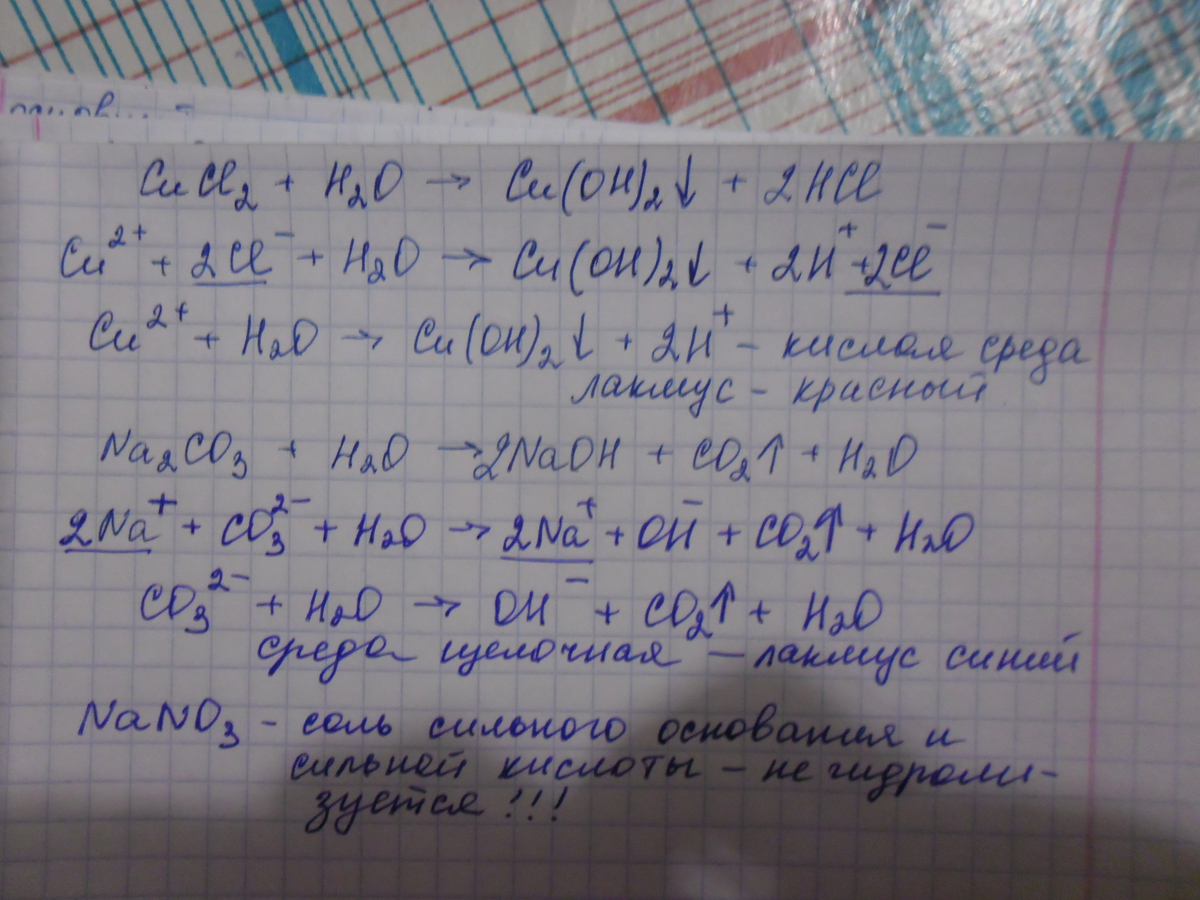 CuCl₂ + H₂O → Cu(OH)₂↓ + 2HCl
Cu²⁺ + 2Cl⁻ + H₂O → Cu(OH)₂↓ + 2H⁺ + 2Cl⁻
Cu²⁺ + H₂O → Cu(OH)₂↓ + 2H⁺ – кислая среда
лакмус – красный
Na₂CO₃ + H₂O → 2NaOH + CO₂↑ + H₂O
2Na⁺ + CO₃²⁻ + H₂O → 2Na⁺ + OH⁻ + CO₂↑ + H₂O
CO₃²⁻ + H₂O → OH⁻ + CO₂↑ + H₂O
среда щелочная – лакмус синий
NaNO₃ – соль сильного основания и
сильной кислоты – не гидроли-
зуется!!!